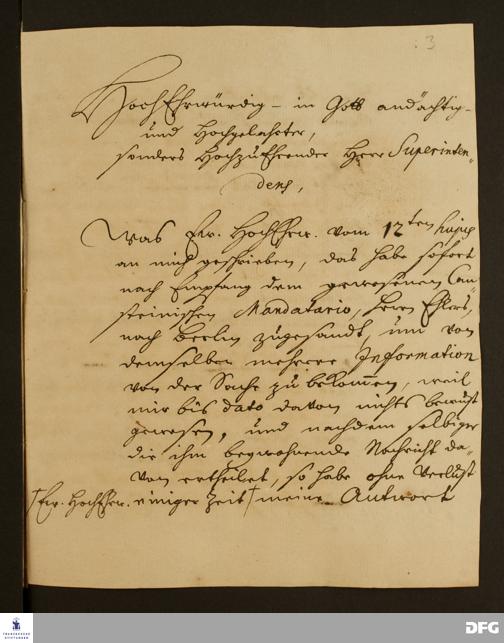 3
HochEhrwürdig- in Gott andächtig-
und Hochgelahrter,
sonders HochzuEhrender Herr Superinten-
dens,
Was Ew. HochEhrw. vom 12ten hujus
an mich geschrieben, das habe sofort
nach Empfang dem gewesenen Can-
steinischen Mandatario, Herrn Ehlers,
nach Berlin zugesandt, um von
demselben mehrere Information
von der Sache zu bekom̅en, weil
mir bis dato davon nichts bewust
gewesen, und nachdem selbiger
die ihm beywohnende Nachricht da-
von ertheilet, so habe ohne Verlust
†Ew. HochEhrw. einiger Zeit † meine Antwort
FRANCKESCHE STIFTUNGEN
DFG